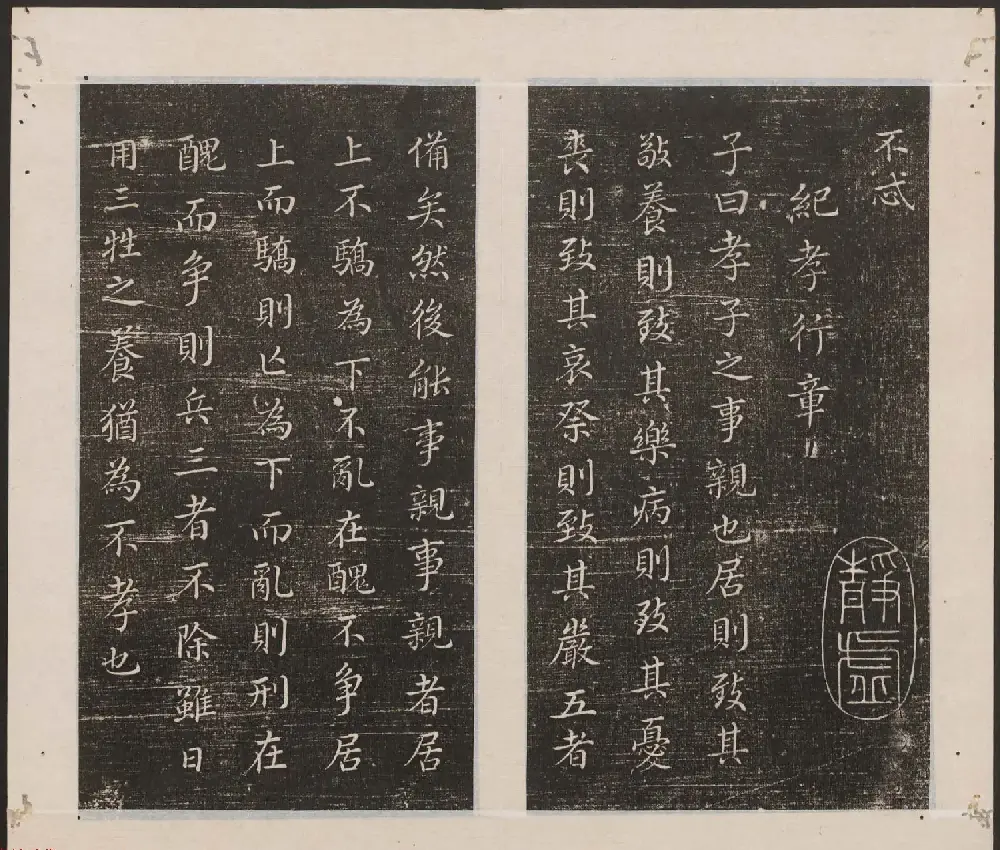 不忒
紀孝行章
子曰孝子之事親也居則致其
敬養則致其樂病則致其憂
喪則致其哀祭則致其嚴五者
備矣然後能事親事親者居
上不驕為下不亂在醜不争居
上而驕則亡為下而亂則刑在
醜而争則兵三者不除雖日
用三牲之養猶為不孝也